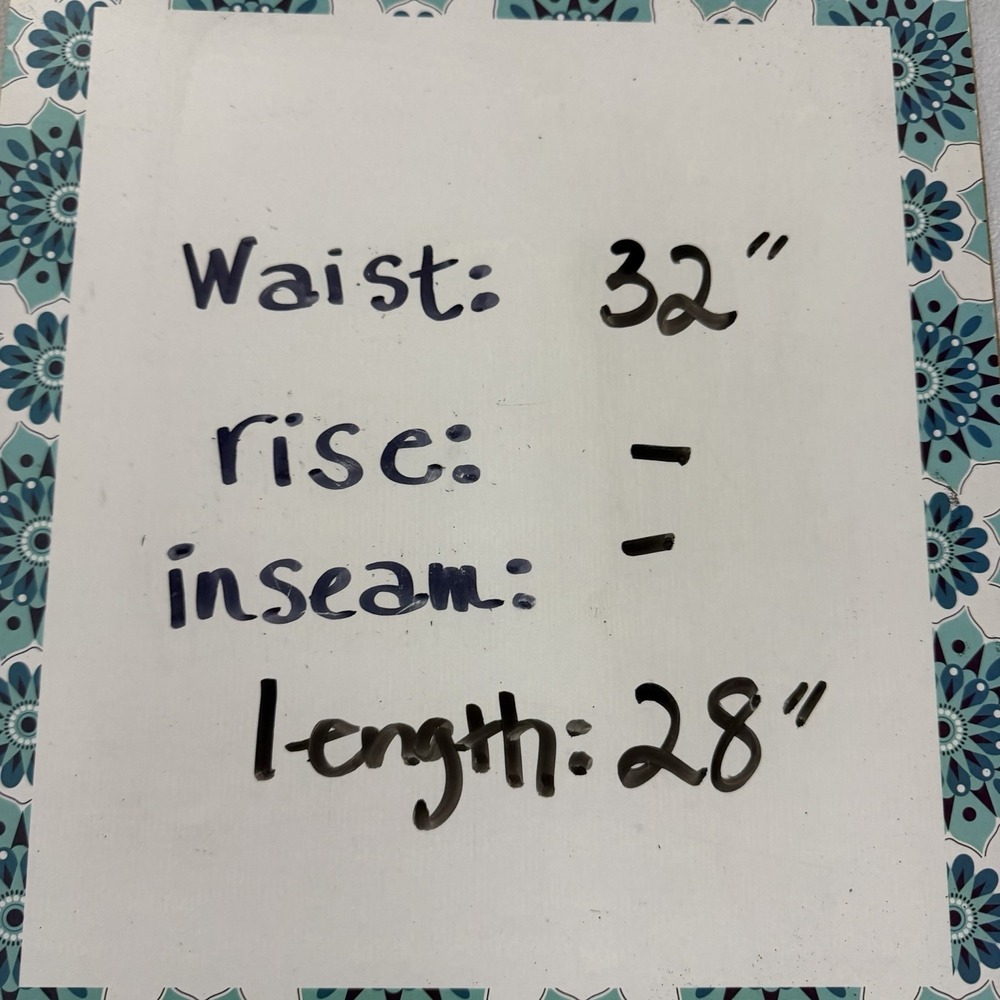 Waist: 32"
rise: -
inseam: -
length: 28"